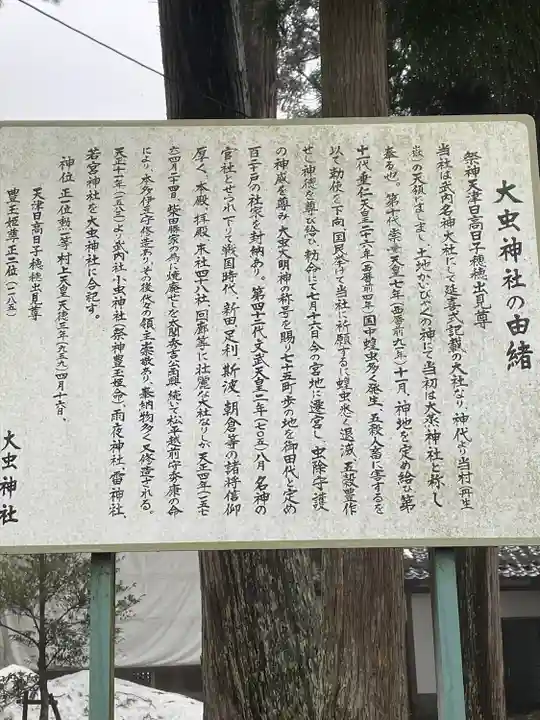 大虫神社の由緒
祭神天津日高日子穂穂出見尊
当社は武内名神大社にして延喜式記載の大社なり、神代より当村(丹生
嶽)の天領にましまし、土地かいびゃくの神にて当初は大黒神社と称し
奉る也。第十代崇神天皇七年(西暦前九一年)十一月、神地を定め給ひ第
十代垂仁天皇二十六年(西暦前四年)国中蝗虫多く発生、五穀人畜に害するを
以て勅使を下向、国民挙げて当社に祈願するに蝗虫悉く退滅、五穀豊作
せし神徳を尊び給ひ勅命にて七月十六日今の宮地に遷宮し、虫除守護
の神威を尊み大虫大明神の称号を賜り七十五町歩の地を御田代と定め
百二十戸の社家を封納あり。第四十二代文武天皇二年(七〇五)八月名神の
官社に せられ下りて戦国時代、新田、足利、斯波、朝倉等の諸将信仰
厚く、本殿、拝殿、末社四十八社、回廊等に壮麗な大社なりしが天正四年(一五七
六)四月二十四日、柴田勝家の為に焼廃せしを太閤秀吉公再興、続いて松平越前守秀康の命
により、本多伊豆守修造あり、その後代々の領主崇敬あり、奉納物多く又修造される。
天正十一年(一五八三)より武内社 小虫神社(祭神豊玉姫命)雨夜神社、雷神社、
若宮神社を大虫神社に合祀す。
神位 正一位勲一等 村上天皇天徳三年(九五九)四月十六日、
天津日高日子穂穂出見尊
豊玉姫尊正二位(一二八五)
大虫神社